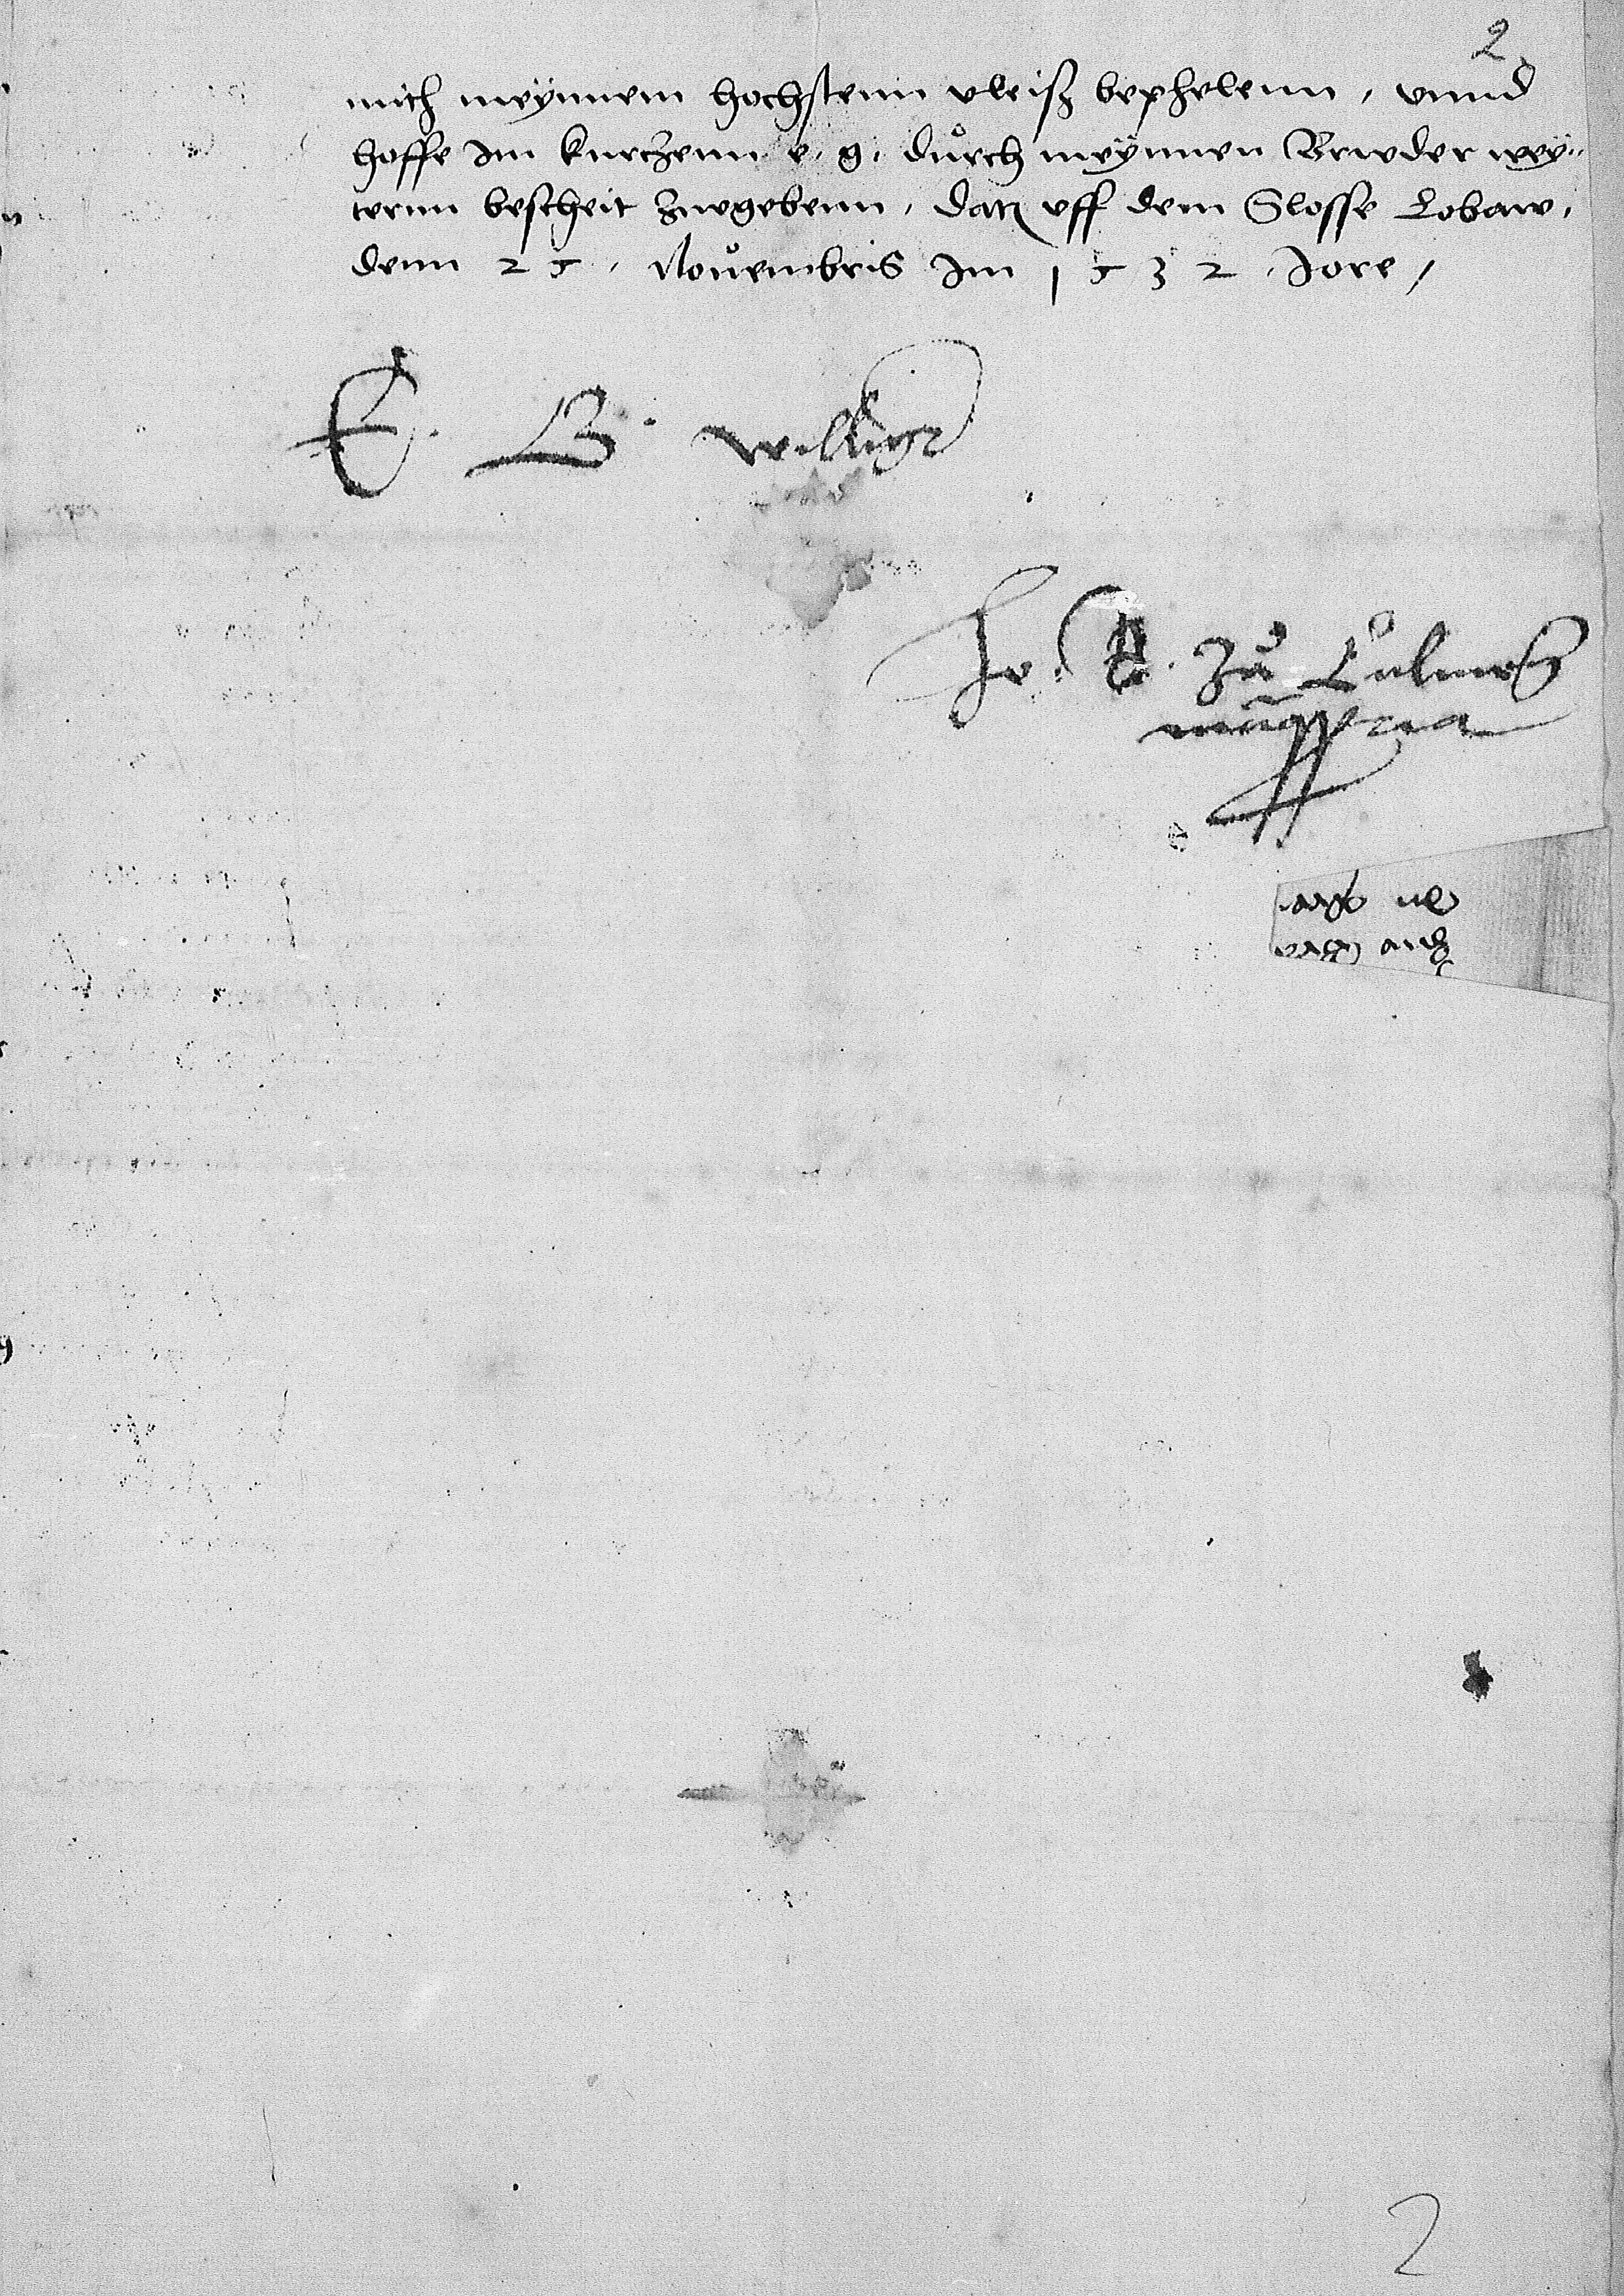 2
mich meynnem hochstenn vleisz bephelenn, vnnd
hoffe Im kurczenn e. g. důrch meynnen Brwder wey„
ternn bescheit zwgebenn, Dat vff dem Slosse Lobaw,
denn 25. Nouembris Im 1532. Jore,
E. G. willige
Jo. B. zů Culmen
mã ppria
2